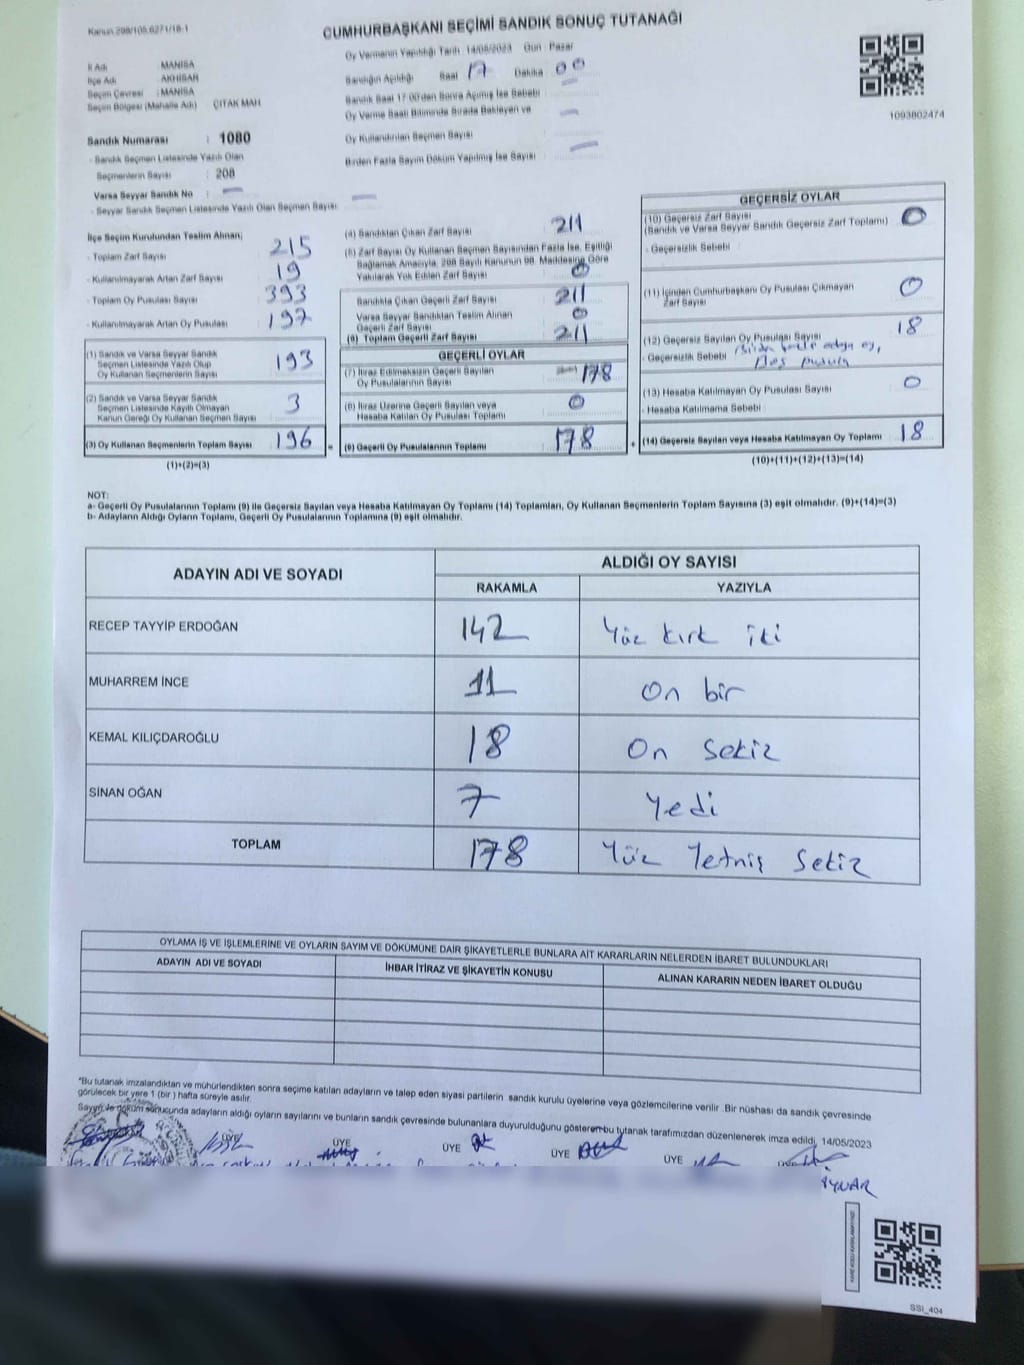 Kanun 298/105,6271/18-1
CUMHURBAŞKANI SEÇİMİ SANDIK SONUÇ TUTANAĞI
İl Adı : MANİSA
İlçe Adı : AKHİSAR
Seçim Çevresi : MANİSA
Seçim Bölgesi (Mahalle Adı) ÇITAK MAH
Sandık Numarası : 1080
- Sandık Seçmen Listesinde Yazılı Olan
Seçmenlerin Sayısı : 208
Varsa Seyyar Sandık No : —
- Seyyar Sandık Seçmen Listesinde Yazılı Olan Seçmen Sayısı: —
Oy Vermenin Yapıldığı Tarih 14/05/2023 Gün : Pazar
Sandığın Açıldığı Saat 17 Dakika 00
Sandık Saat 17:00'den Sonra Açılmış İse Sebebi : —
Oy Verme Saati Bitiminde Sırada Bekleyen ve
Oy Kullandırılan Seçmen Sayısı : —
Birden Fazla Sayım Döküm Yapılmış İse Sayısı : —
1093802474
İlçe Seçim Kurulundan Teslim Alınan;
- Toplam Zarf Sayısı : 215
- Kullanılmayarak Artan Zarf Sayısı : 19
- Toplam Oy Pusulası Sayısı : 393
- Kullanılmayarak Artan Oy Pusulası : 197
(1) Sandık ve Varsa Seyyar Sandık
Seçmen Listesinde Yazılı Olup
Oy Kullanan Seçmenlerin Sayısı 193
(2) Sandık ve Varsa Seyyar Sandık
Seçmen Listesinde Kayıtlı Olmayan
Kanun Gereği Oy Kullanan Seçmen Sayısı 3
(3) Oy Kullanan Seçmenlerin Toplam Sayısı 196
(1)+(2)=(3)
(4) Sandıktan Çıkan Zarf Sayısı 211
(5) Zarf Sayısı Oy Kullanan Seçmen Sayısından Fazla İse, Eşitliği
Sağlamak Amacıyla, 298 Sayılı Kanunun 98. Maddesine Göre
Yakılarak Yok Edilen Zarf Sayısı 0
Sandıkta Çıkan Geçerli Zarf Sayısı 211
Varsa Seyyar Sandıktan Teslim Alınan
Geçerli Zarf Sayısı 0
(6) Toplam Geçerli Zarf Sayısı 211
GEÇERLİ OYLAR
(7) İtiraz Edilmeksizin Geçerli Sayılan
Oy Pusulalarının Sayısı 178
(8) İtiraz Üzerine Geçerli Sayılan veya
Hesaba Katılan Oy Pusulalarının Toplamı 0
(9) Geçerli Oy Pusulalarının Toplamı 178
GEÇERSİZ OYLAR
(10) Geçersiz Zarf Sayısı
(Sandık ve Varsa Seyyar Sandık Geçersiz Zarf Toplamı) 0
- Geçersizlik Sebebi :
(11) İçinden Cumhurbaşkanı Oy Pusulası Çıkmayan
Zarf Sayısı 0
(12) Geçersiz Sayılan Oy Pusulası Sayısı 18
- Geçersizlik Sebebi : Birden fazla adaya oy,
Boş pusula
(13) Hesaba Katılmayan Oy Pusulası Sayısı 0
- Hesaba Katılmama Sebebi :
(14) Geçersiz Sayılan veya Hesaba Katılmayan Oy Toplamı 18
(10)+(11)+(12)+(13)=(14)
NOT:
a- Geçerli Oy Pusulalarının Toplamı (9) ile Geçersiz Sayılan veya Hesaba Katılmayan Oy Toplamı (14) Toplamları, Oy Kullanan Seçmenlerin Toplam Sayısına (3) eşit olmalıdır. (9)+(14)=(3)
b- Adayların Aldığı Oyların Toplamı, Geçerli Oy Pusulalarının Toplamına (9) eşit olmalıdır.
ADAYIN ADI VE SOYADI ALDIĞI OY SAYISI
RAKAMLA YAZIYLA
RECEP TAYYİP ERDOĞAN 142 Yüz kırk iki
MUHARREM İNCE 11 On bir
KEMAL KILIÇDAROĞLU 18 On Sekiz
SİNAN OĞAN 7 Yedi
TOPLAM 178 Yüz Yetmiş Sekiz
OYLAMA İŞ VE İŞLEMLERİNE VE OYLARIN SAYIM VE DÖKÜMÜNE DAİR ŞİKAYETLERLE BUNLARA AİT KARARLARIN NELERDEN İBARET BULUNDUKLARI
ADAYIN ADI VE SOYADI İHBAR İTİRAZ VE ŞİKAYETİN KONUSU ALINAN KARARIN NEDEN İBARET OLDUĞU
"Bu tutanak imzalandıktan ve mühürlendikten sonra seçime katılan adayların ve talep eden siyasi partilerin sandık kurulu üyelerine veya gözlemcilerine verilir .Bir nüshası da sandık çevresinde
görülecek bir yere 1 (bir ) hafta süreyle asılır.
Sayım ve döküm sonucunda adayların aldığı oyların sayılarını ve bunların sandık çevresinde bulunanlara duyurulduğunu gösteren bu tutanak tarafımızdan düzenlenerek imza edildi. 14/05/2023
ÜYE ÜYE ÜYE ÜYE ÜYE
SSI_404